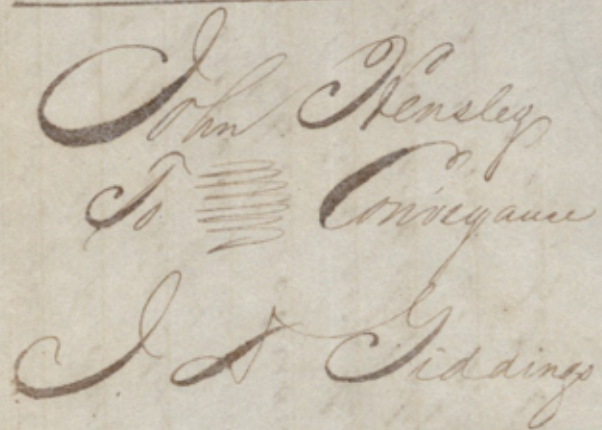 John Hensley
To Conveyance
J D Giddings